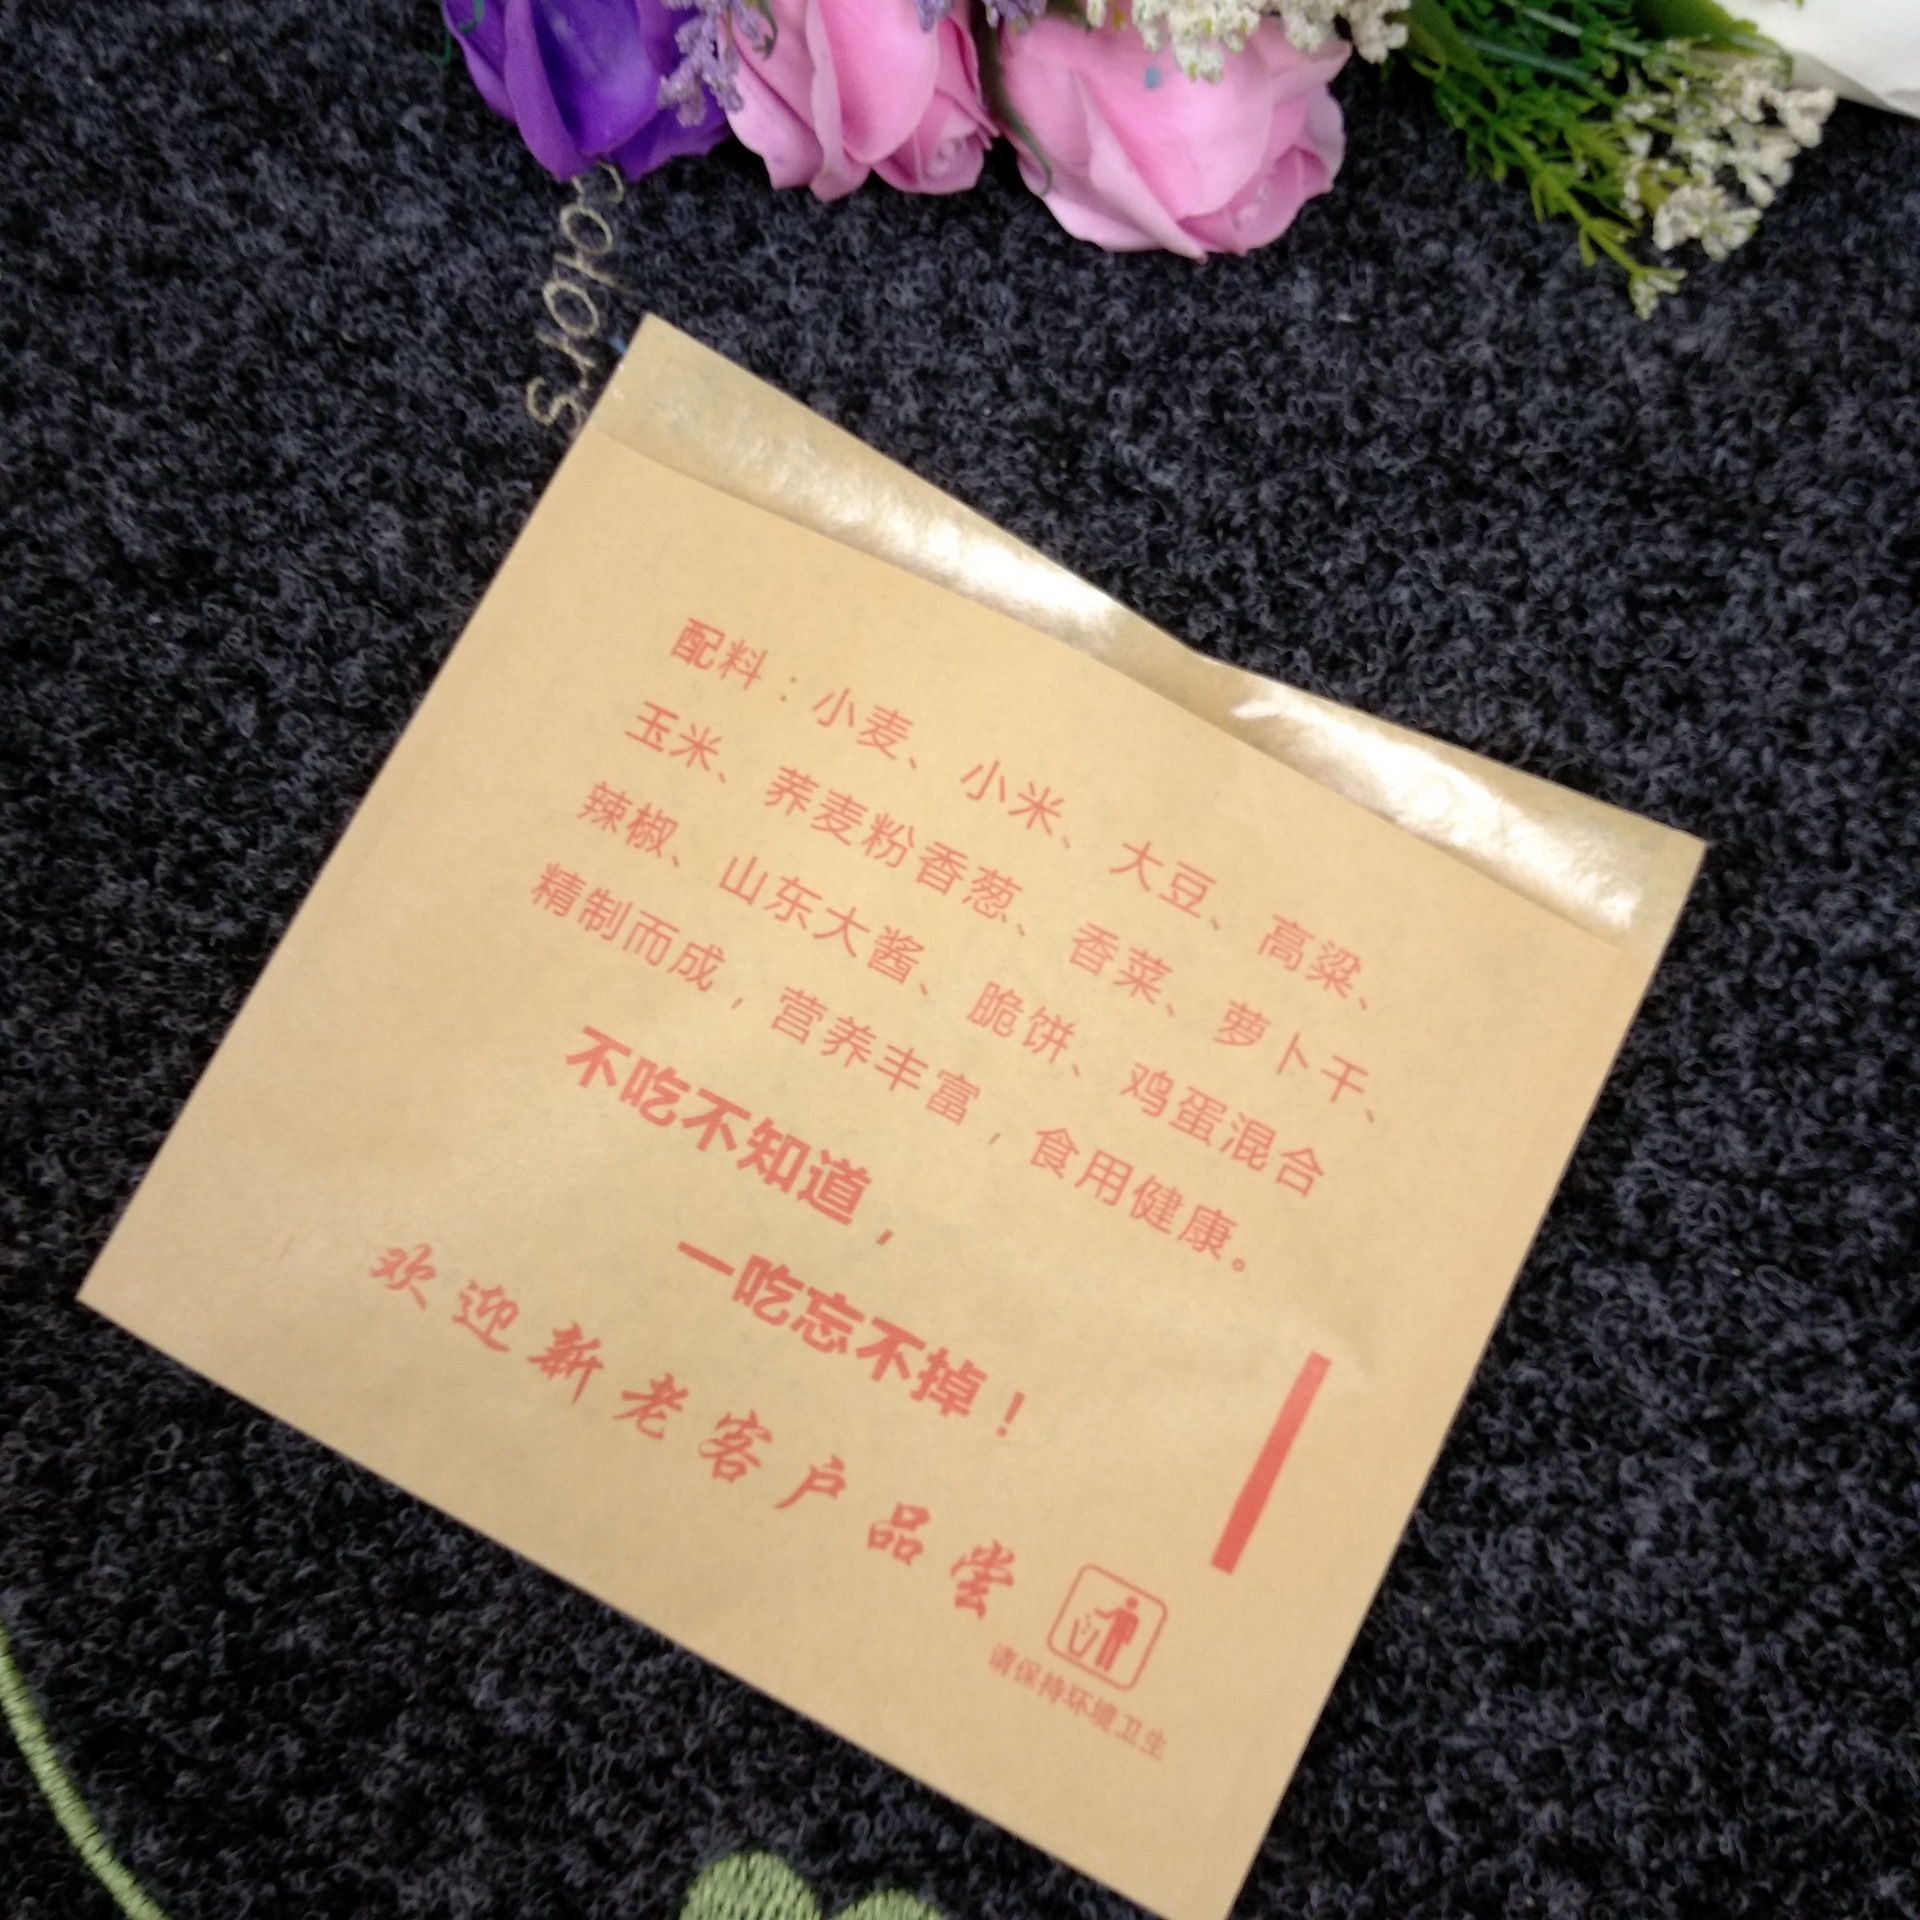 配料：小麦、小米、大豆、高粱、
玉米、荞麦粉香葱、香菜、萝卜干、
辣椒、山东大酱、脆饼、鸡蛋混合
精制而成，营养丰富，食用健康。
不吃不知道，
一吃忘不掉！
欢迎新老客户品尝
请保持环境卫生